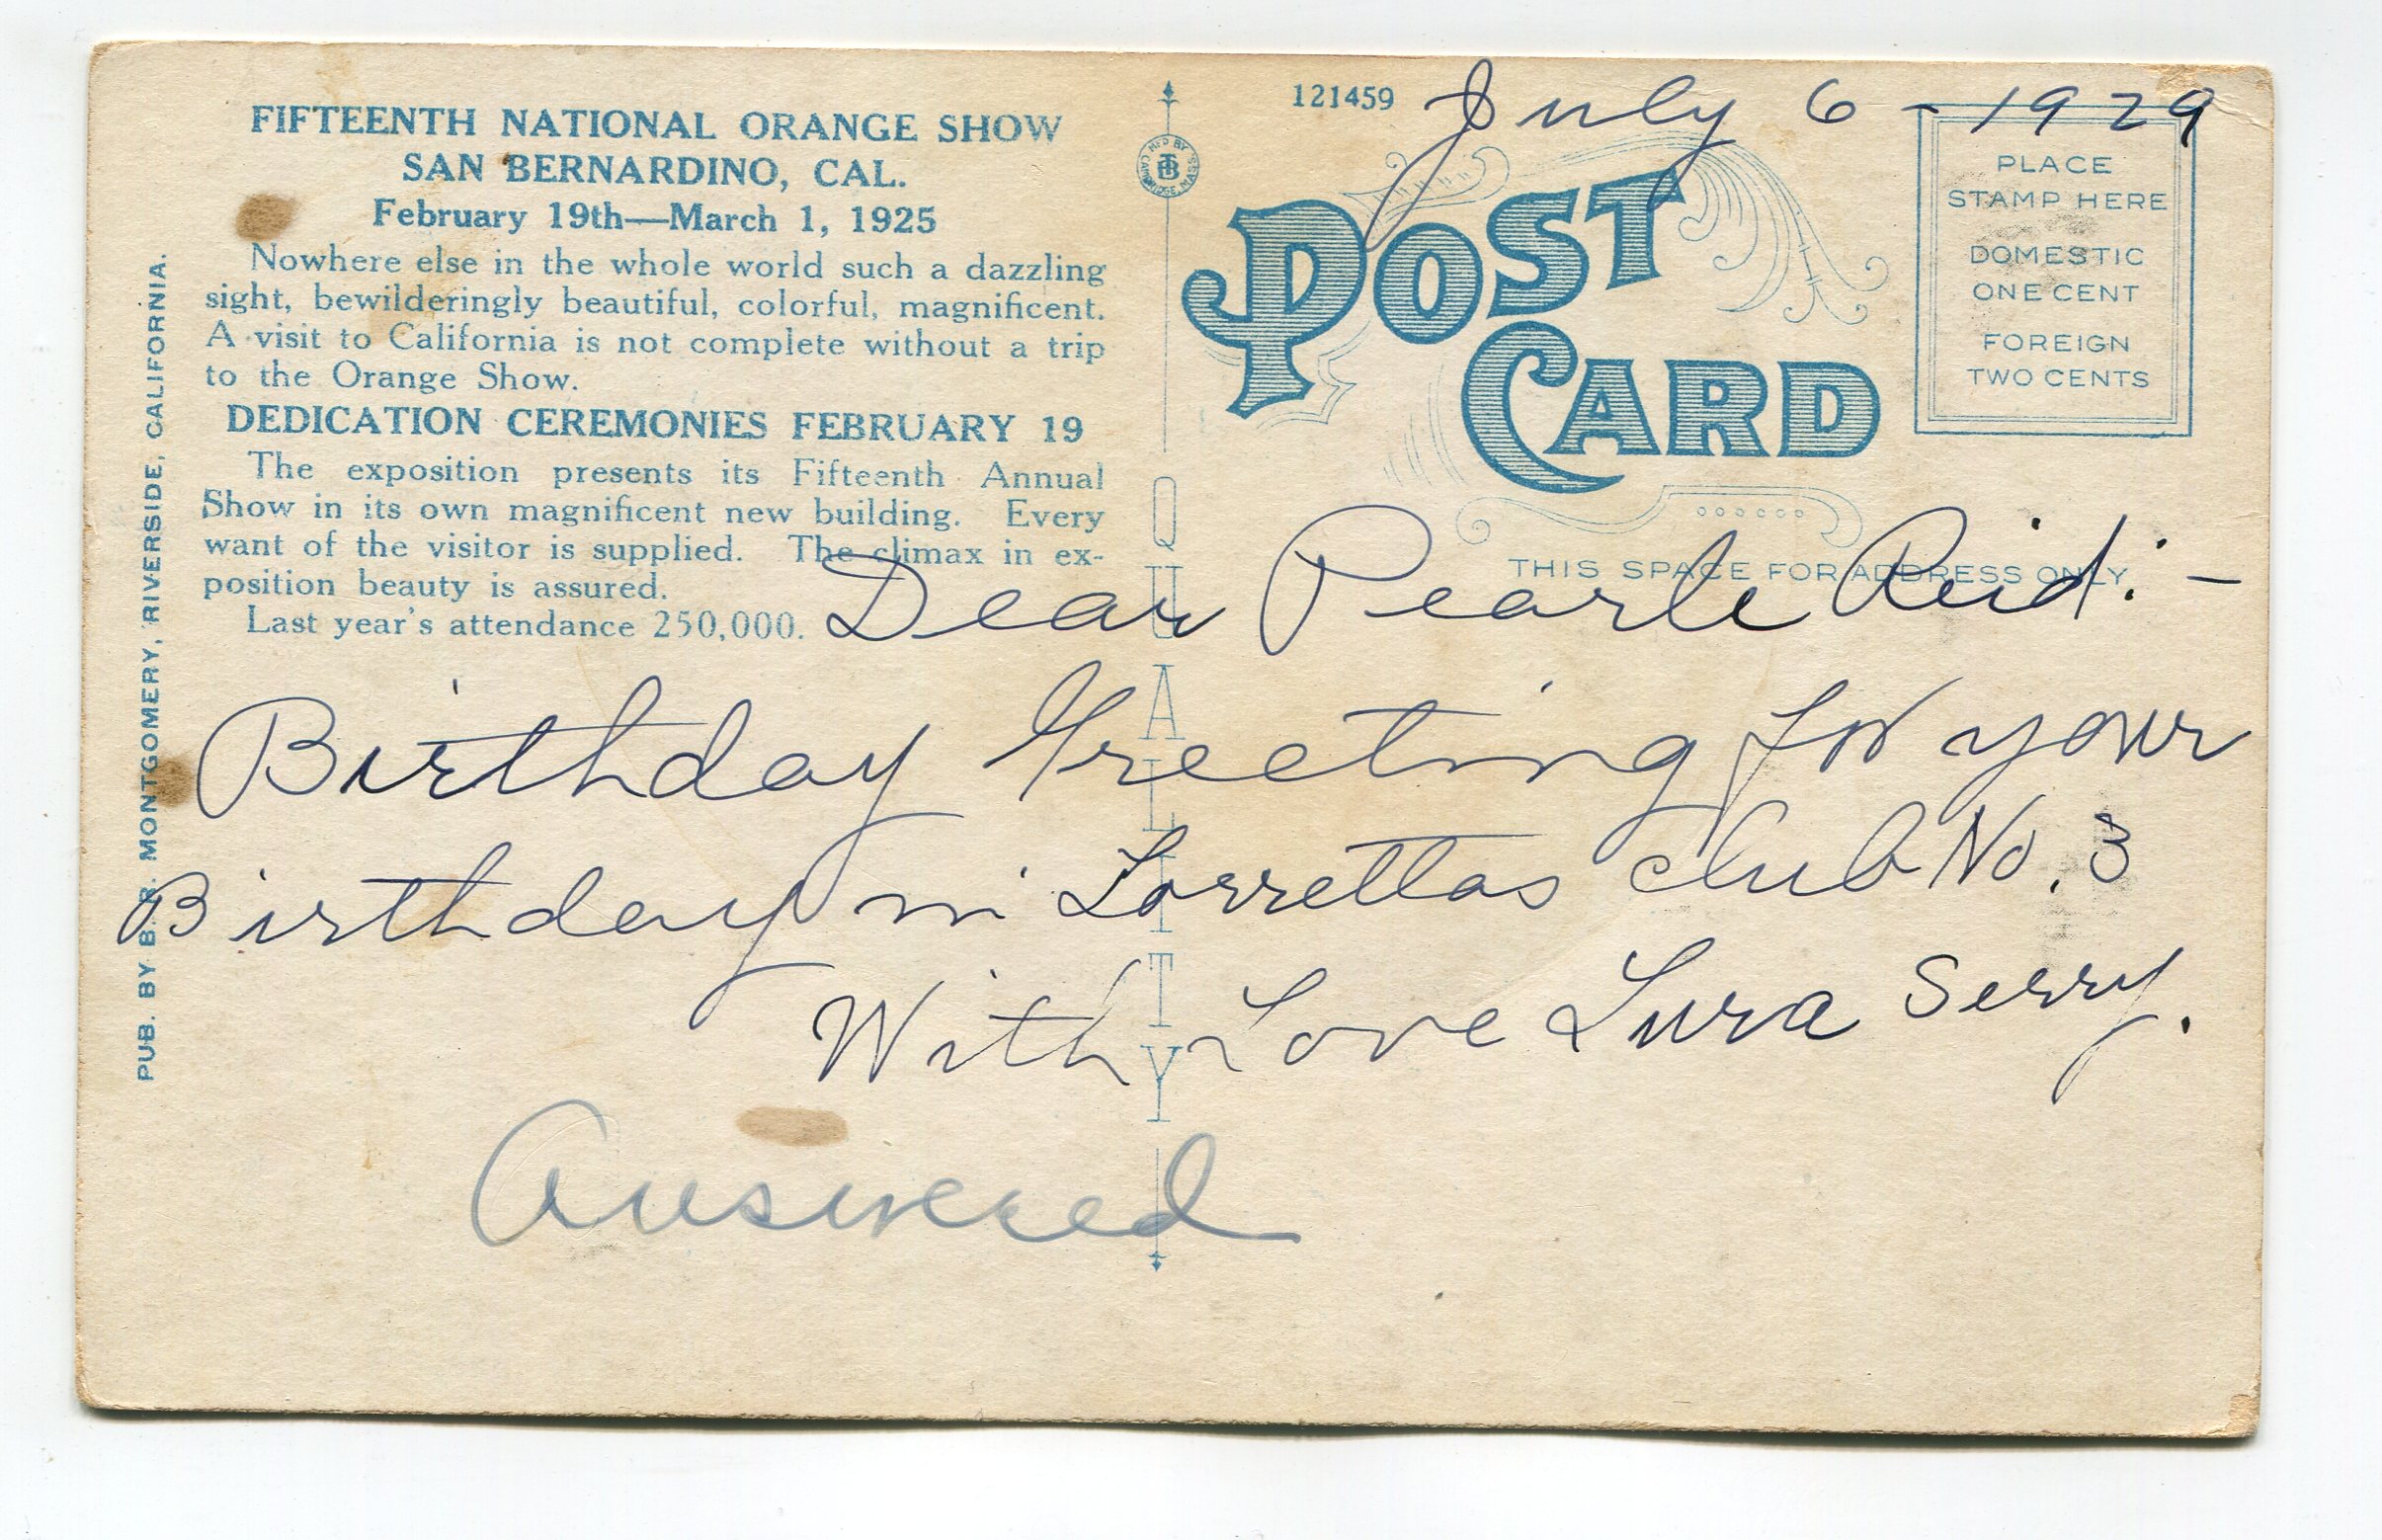 FIFTEENTH NATIONAL ORANGE SHOW
SAN BERNARDINO, CAL.
February 19th—March 1, 1925
Nowhere else in the whole world such a dazzling
sight, bewilderingly beautiful, colorful, magnificent.
A visit to California is not complete without a trip
to the Orange Show.
DEDICATION CEREMONIES FEBRUARY 19
The exposition presents its Fifteenth Annual
Show in its own magnificent new building. Every
want of the visitor is supplied. The climax in ex-
position beauty is assured.
Last year's attendance 250,000.
PUB. BY B. R. MONTGOMERY, RIVERSIDE, CALIFORNIA.
MF'D BY
TB
CAMBRIDGE, MASS.
QUALITY
121459
July 6 - 1929
POST
CARD
PLACE
STAMP HERE
DOMESTIC
ONE CENT
FOREIGN
TWO CENTS
THIS SPACE FOR ADDRESS ONLY
Dear Pearle Reid:-
Birthday Greeting for your
Birthday in Lorrettas club No. 3
With Love Lura Serry.
Answered